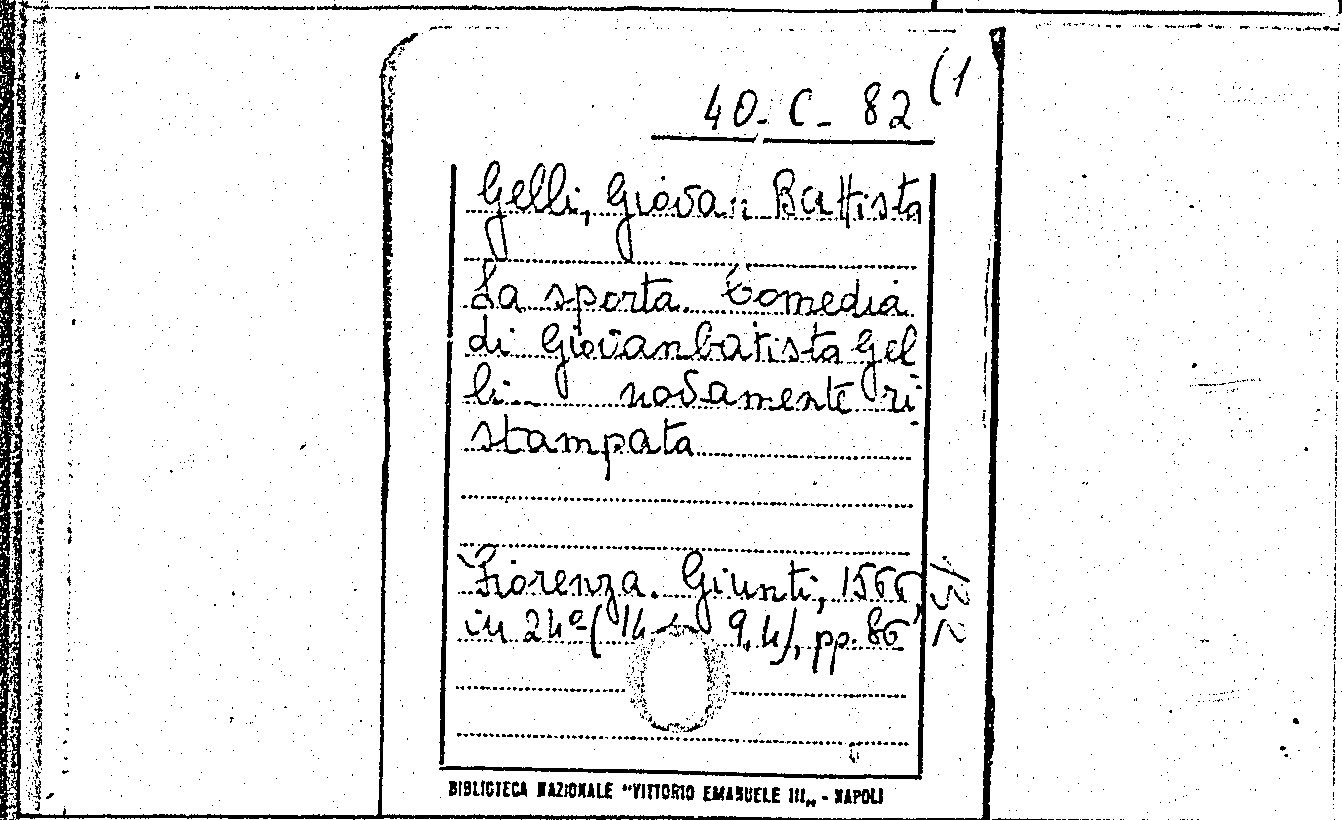 40-C-82 (1
Gelli, Giovan Battista
La sporta. Comedia
di Giovanbatista Gel
li... novamente ri-
stampata
Fiorenza. Giunti, 1566,
in 24º (14 9,4), pp. 86
BIBLIOTECA NAZIONALE "VITTORIO EMANUELE III„ - NAPOLI